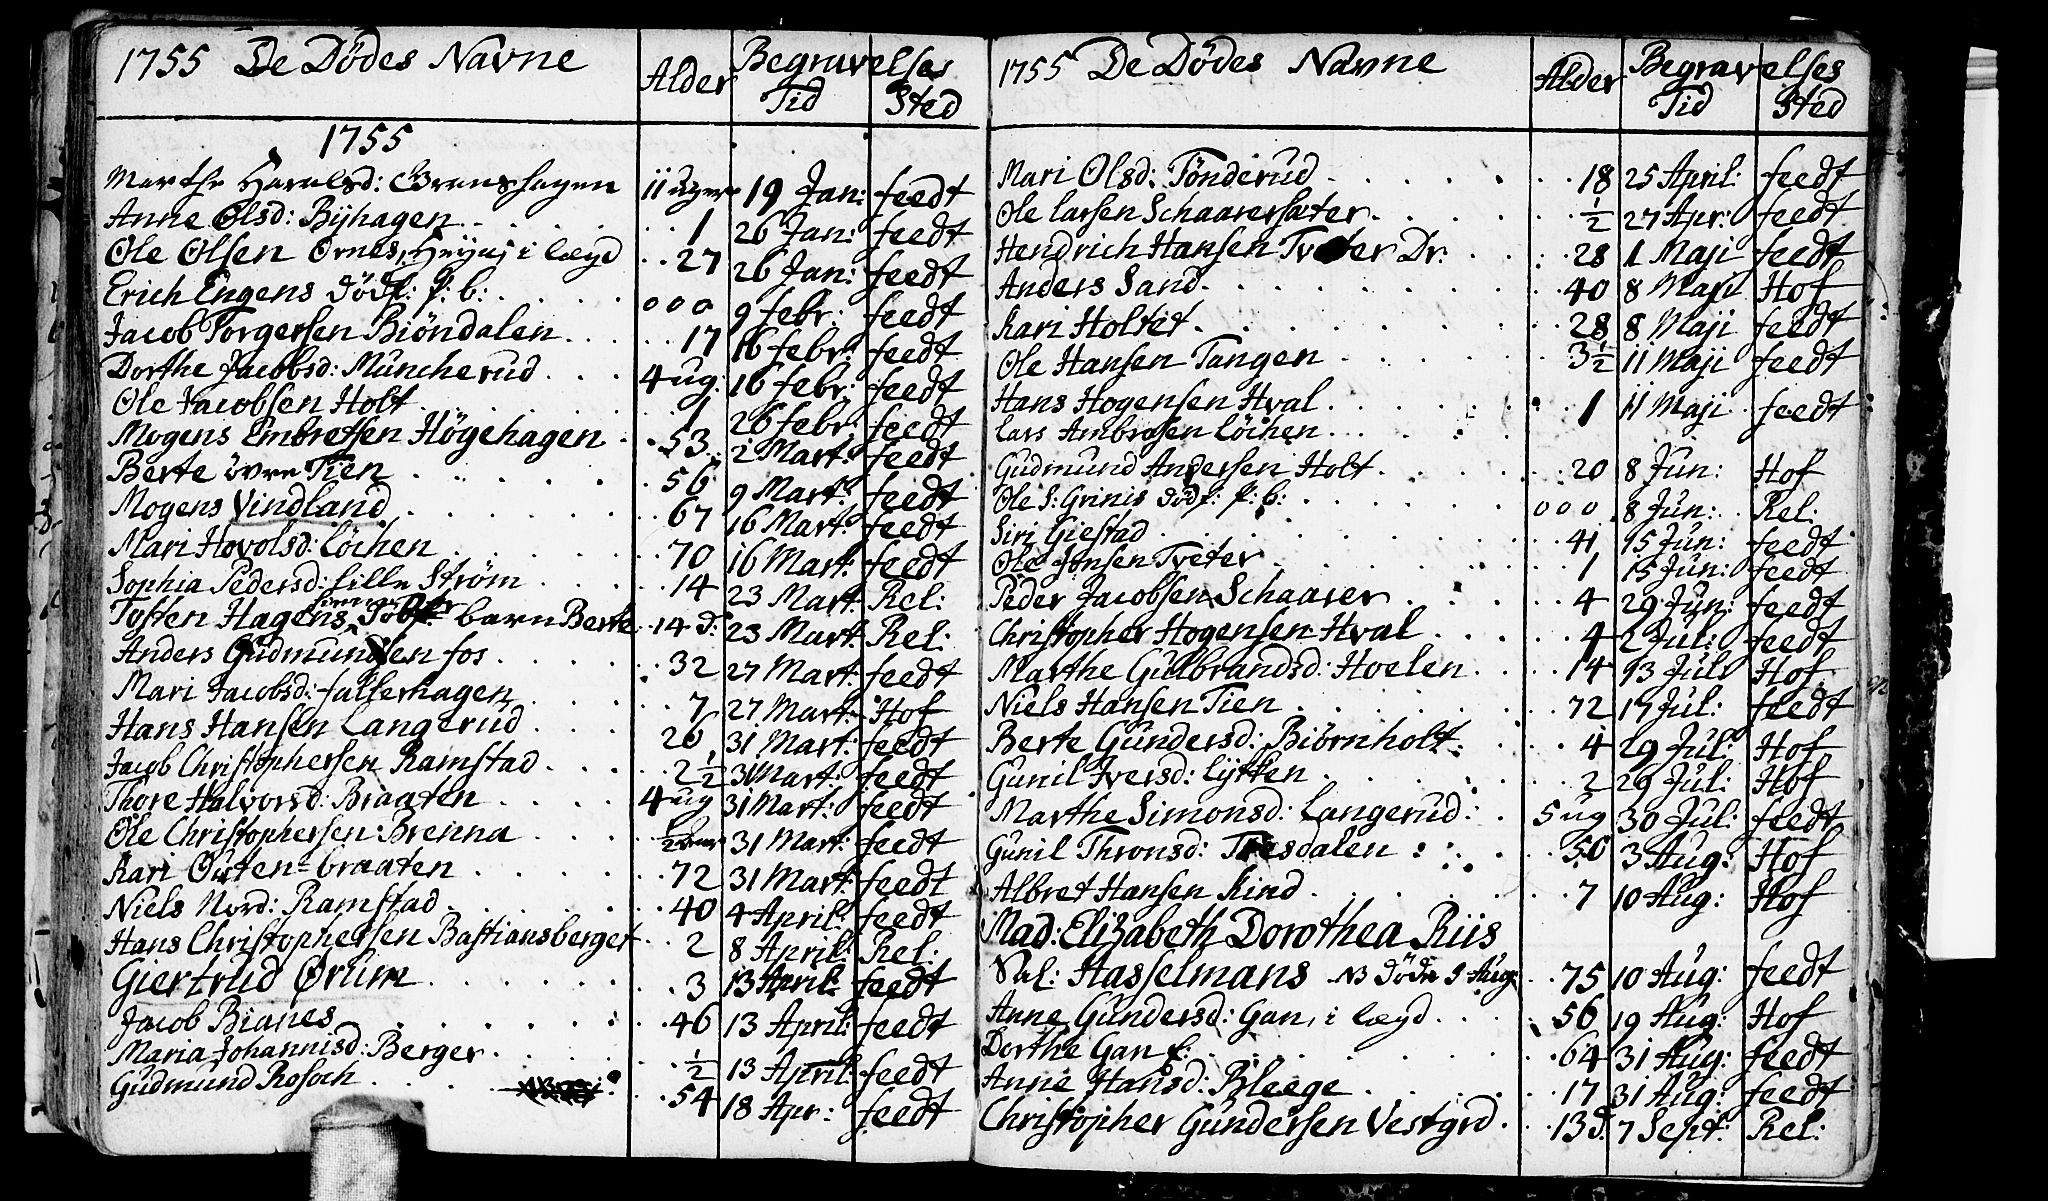 1755 De Dödes Navne Alder Begravelses Tid Sted
1755
Marthe Haralsd: Granshagen 11 uger 19 Jan: feedt
Anne Olsd: Bÿhagen 1 26 Jan: feedt
Ole Olsen Ornes, i lægd 27 26 Jan: feedt
Erich Engens Dödf: P: b: 000 9 febr: feedt
Jacob Torgersen Biöndalen 17 16 febr: feedt
Dorthe Jacobsd: Müncherud 4 ug: 16 febr: feedt
Ole Jacobsen Holt 1 26 febr: feedt
Mogens Embretsen Högehagen 53 2 Mart: feedt
Berte övre Tien 56 9 Mart: feedt
Mogens Vindland 67 16 Mart: feedt
Mari Hovolsd: Löchen 70 16 Mart: feedt
Sophia Pedersd: Lille Ström 14 23 Mart: Rel:
Tosten Hagens barn Berte 14 d: 23 Mart: Rel:
Anders Gudmundsen fos 32 27 Mart: feedt
Mari Jacobsd: fallerhagen 7 27 Mart: Hof
Hans Hansen Langerud 26 31 Mart: feedt
Jacob Christophersen Ramstad 2 1/2 31 Mart: feedt
Thore Halvorsd: Braaten 4 ug 31 Mart: feedt
Ole Christophersen: Brenna 31 Mart: feedt
Kari Outen-braaten 72 31 Mart: feedt
Niels Nord: Ramstad 40 4 April: feedt
Hans Christophersen Bastiansberget 2 8 April: Rel:
Giertrud Ørum 3 13 April: feedt
Jacob Bianes 46 13 April: feedt
Maria Johannisd: Berger 1/2 13 April: feedt
Gudmund Rosoch 54 18 Apr: feedt
1755 De Dödes Navne Alder Begravelses Tid Sted
Mari Olsd: Tönderud 18 25 April: feedt
Ole Larsen Schaarersæter 1/2 27 Apr: feedt
Hendrich Hansen Tveter Dr: 28 1 Maji feedt
Anders Sand 40 8 Maji Hof
Kari Holtet 28 8 Maji feedt
Ole Hansen Tangen 3 1/2 11 Maji feedt
Hans Hogensen Hval 1 11 Maji feedt
Lars Ambrosen Löchen
Gudmund Andersen Holt 20 8 Jun: Hof
Ole S: Grinis Dödf: P: b: 000 8 Jun: Rel:
Siri Giestad 41 15 Jun: feedt
Ole Jonsen Tveter 1 15 Jun: feedt
Peder Jacobsen Schaarer 4 29 Jun: feedt
Christopher Hogensen Hval 4 2 Jul: feedt
Marthe Gulbrandsd: Hoelen 14 13 Jul Hof
Niels Hansen Tien 72 17 Jul: feedt
Berte Gundersd: Biörnholt 4 29 Jul: Hof
Gunil Iversd: Lÿkken 2 29 Jul: Hof
Marthe Simonsd: Langerud 5 ug 30 Jul: feedt
Gunil Thronsd: Tresdalen 50 3 Aug: Hof
Albret Hansen Rind 7 10 Aug: Hof
Mad: Elizabeth Dorothea Riis
Sal: Hasselmans NB döde 5 Aug: 75 10 Aug: feedt
Anne Gundersd: Gan, i lægd 56 19 Aug: Hof
Dorthe Gan f: 64 31 Aug: feedt
Anne Hansd: Bleege 17 31 Aug: feedt
Christopher Gundersen Vestgrd 13 d. 7 Sept: Rel: